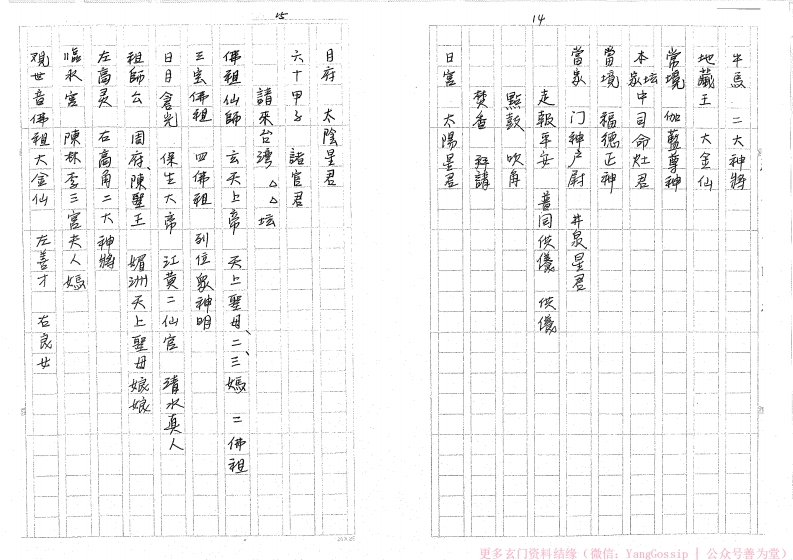 14
牛馬 二大神將
地藏王 大金仙
常境 伽藍尊神
本家坛中司命灶君
當境 福德正神
當家 門神户尉 井泉星君
走報平安 普同供儀 供儀
點鼓 吹角
焚香 拜請
日宮 太陽星君
15
月府 太陰星君
六十甲子 諸官君
請來台灣 △△坛
佛祖仙師 玄天上帝 天上聖母、二、三媽 二佛祖
三宝佛祖 四佛祖 列位眾神明
日月倉光 保生大帝 江黄二仙官 清水真人
祖師公 周府陳聖王 媚洲天上聖母娘娘
左高灵 右高角二大神將
臨水宫 陳林李三宫夫人媽
观世音佛祖大金仙 左善才 右良女
更多玄门资料结缘（微信：YangGossip | 公众号善为堂）